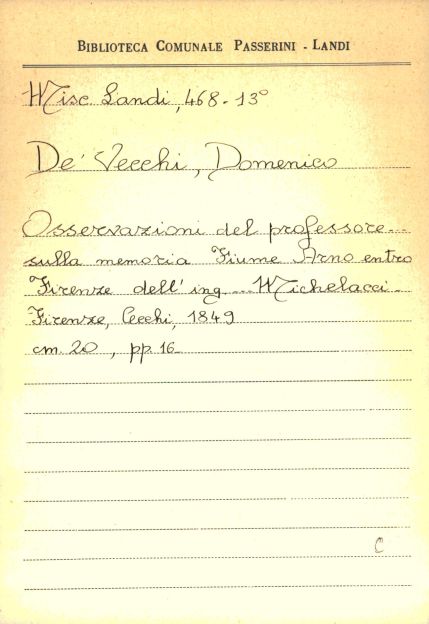 BIBLIOTECA COMUNALE PASSERINI - LANDI
Misc. Landi, 468 - 13°
De' Vecchi, Domenico
Osservazioni del professore...
sulla memoria Fiume Arno entro
Firenze dell' ing. ... Michelacci -
Firenze, Cecchi, 1849
cm. 20, pp. 16
C